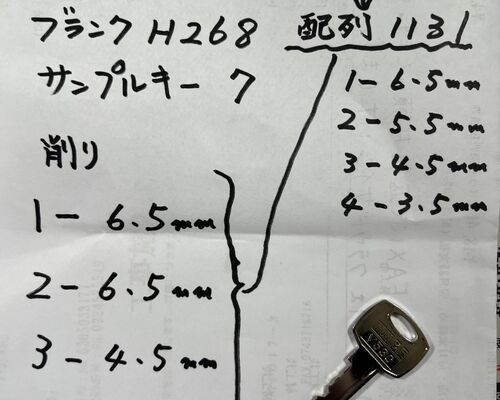 ブランク H268
サンプルキー 7
削り
1- 6.5mm
2- 6.5mm
3- 4.5mm
配列 1131
1-6.5mm
2-5.5mm
3-4.5mm
4-3.5mm
V530